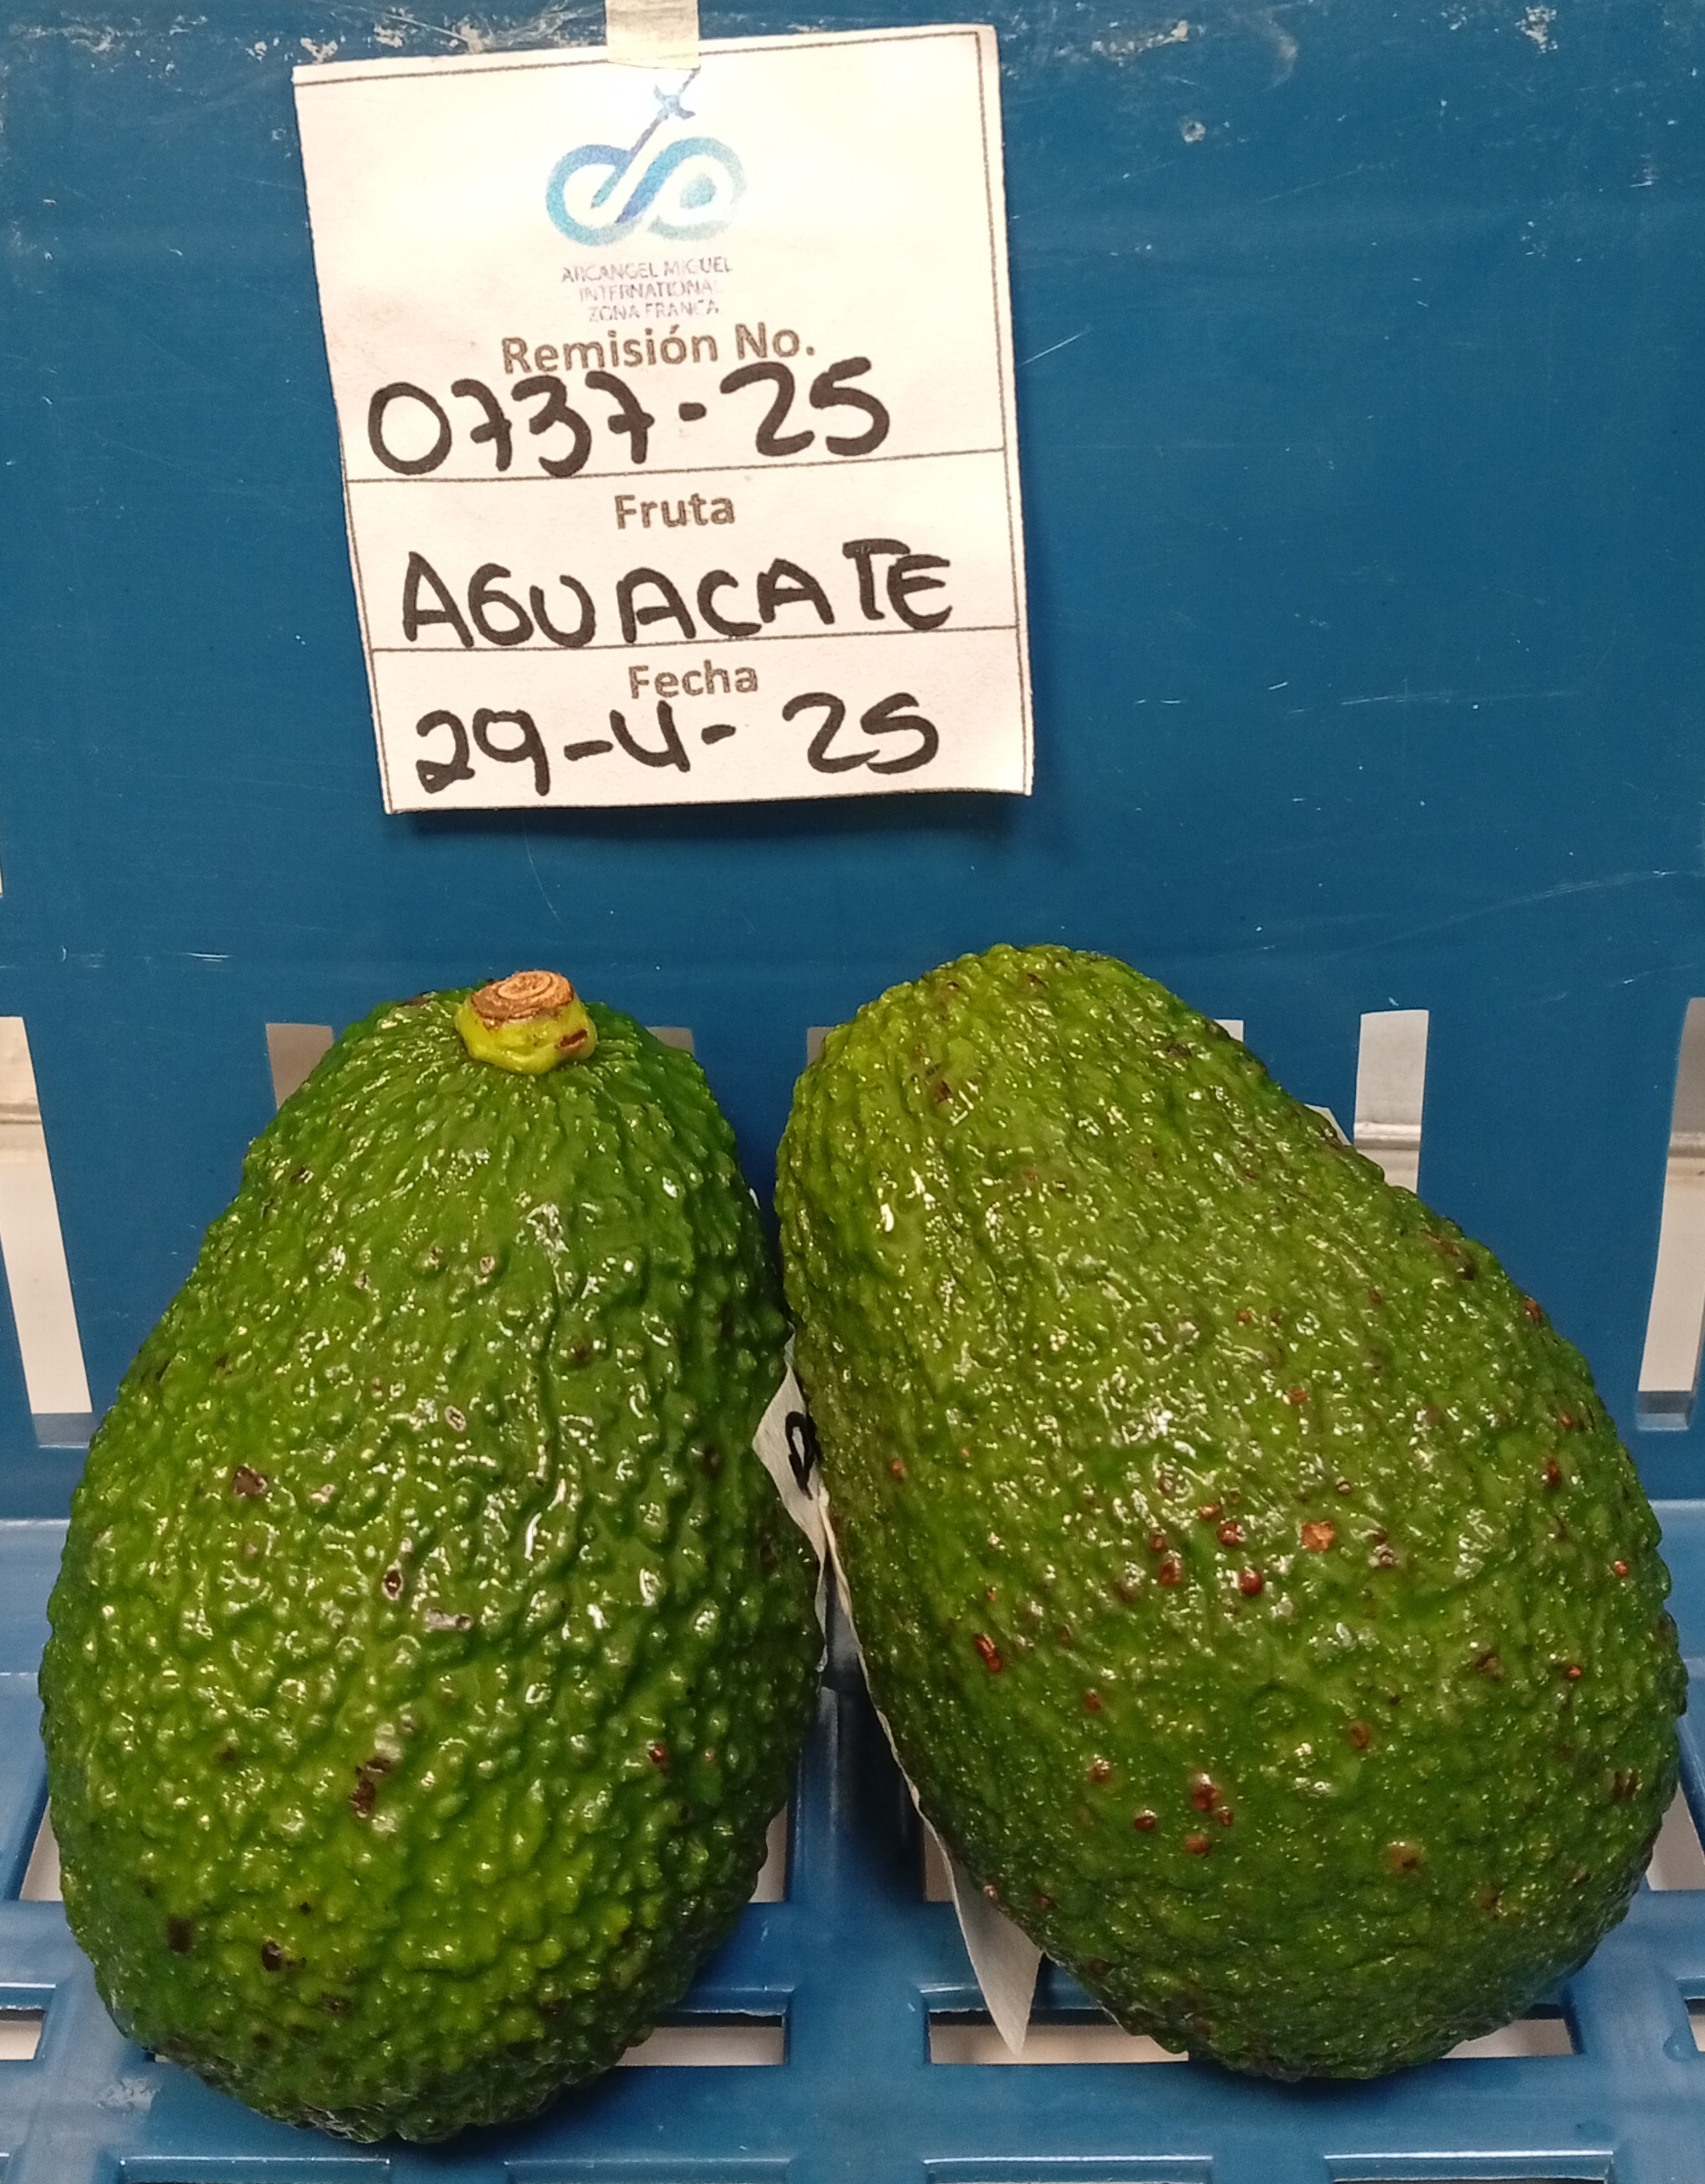 ARCANGEL MIGUEL
INTERNATIONAL
ZONA FRANCA
Remisión No.
0737-25
Fruta
AGUACATE
Fecha
29-4-25